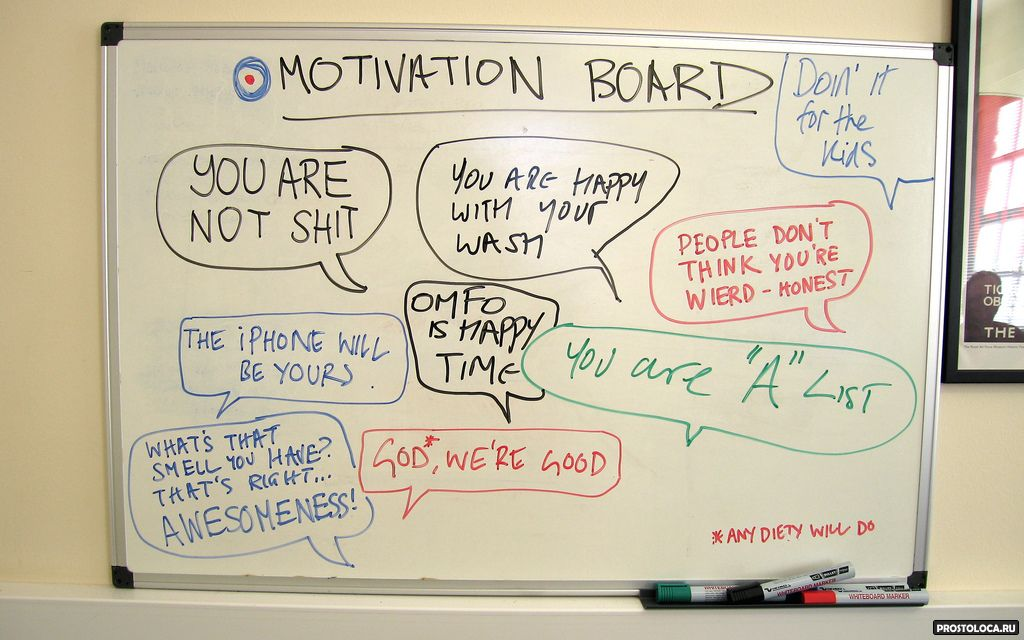 MOTIVATION BOARD
DOIN' IT
for the
KIDS
YOU ARE
NOT SHIT
YOU ARE HAPPY
WITH YOUR
WASH
PEOPLE DON'T
THINK YOU'RE
WIERD - HONEST
OMFO
IS HAPPY
TIME
THE iPHONE WILL
BE YOURS.
YOU are "A" LIST
WHAT'S THAT
SMELL YOU HAVE?
THAT'S RIGHT...
AWESOMENESS!
GOD*, WE'RE GOOD
*ANY DIETY WILL DO
THE
WHITEBOARD MARKER
PROSTOLOCA.RU